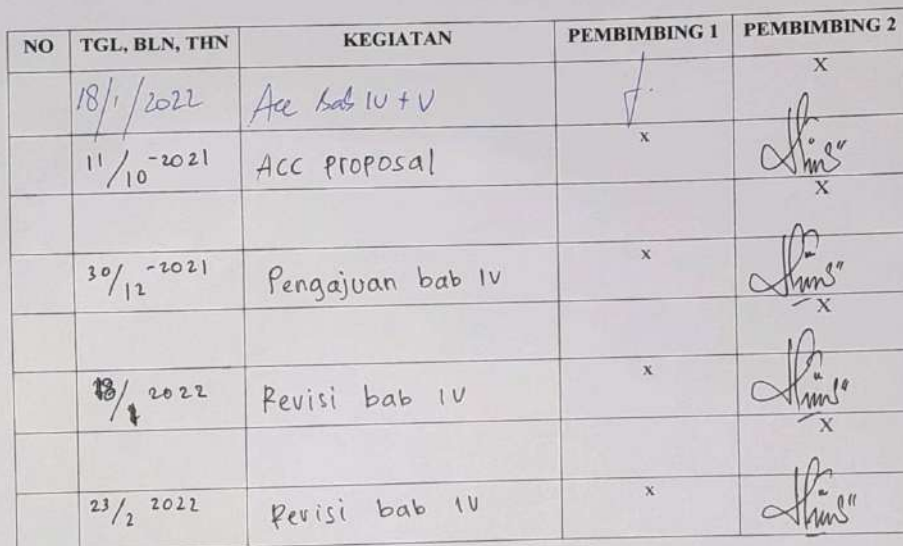 NO TGL, BLN, THN KEGIATAN PEMBIMBING 1 PEMBIMBING 2
18/1/2022 Acc bab IV + V X
11/10-2021 ACC proposal x
X
30/12-2021 Pengajuan bab IV x
X
18/1 2022 Revisi bab IV x
X
23/2 2022 Revisi bab IV x